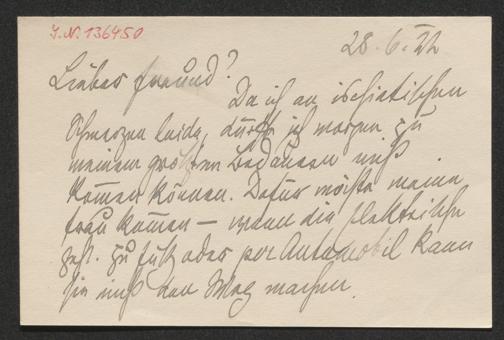 J. N. 136450
28. 6. 22
Lieber Freund!
Da ich an ischiatischen
Schmerzen leide, dürfte ich morgen zu
meinem größten Bedauern nicht
kommen können. Dafür möchte meine
Frau kommen – wenn die Elektrische
geht. Zu Fuß oder per Automobil kann
sie nicht den Weg machen.